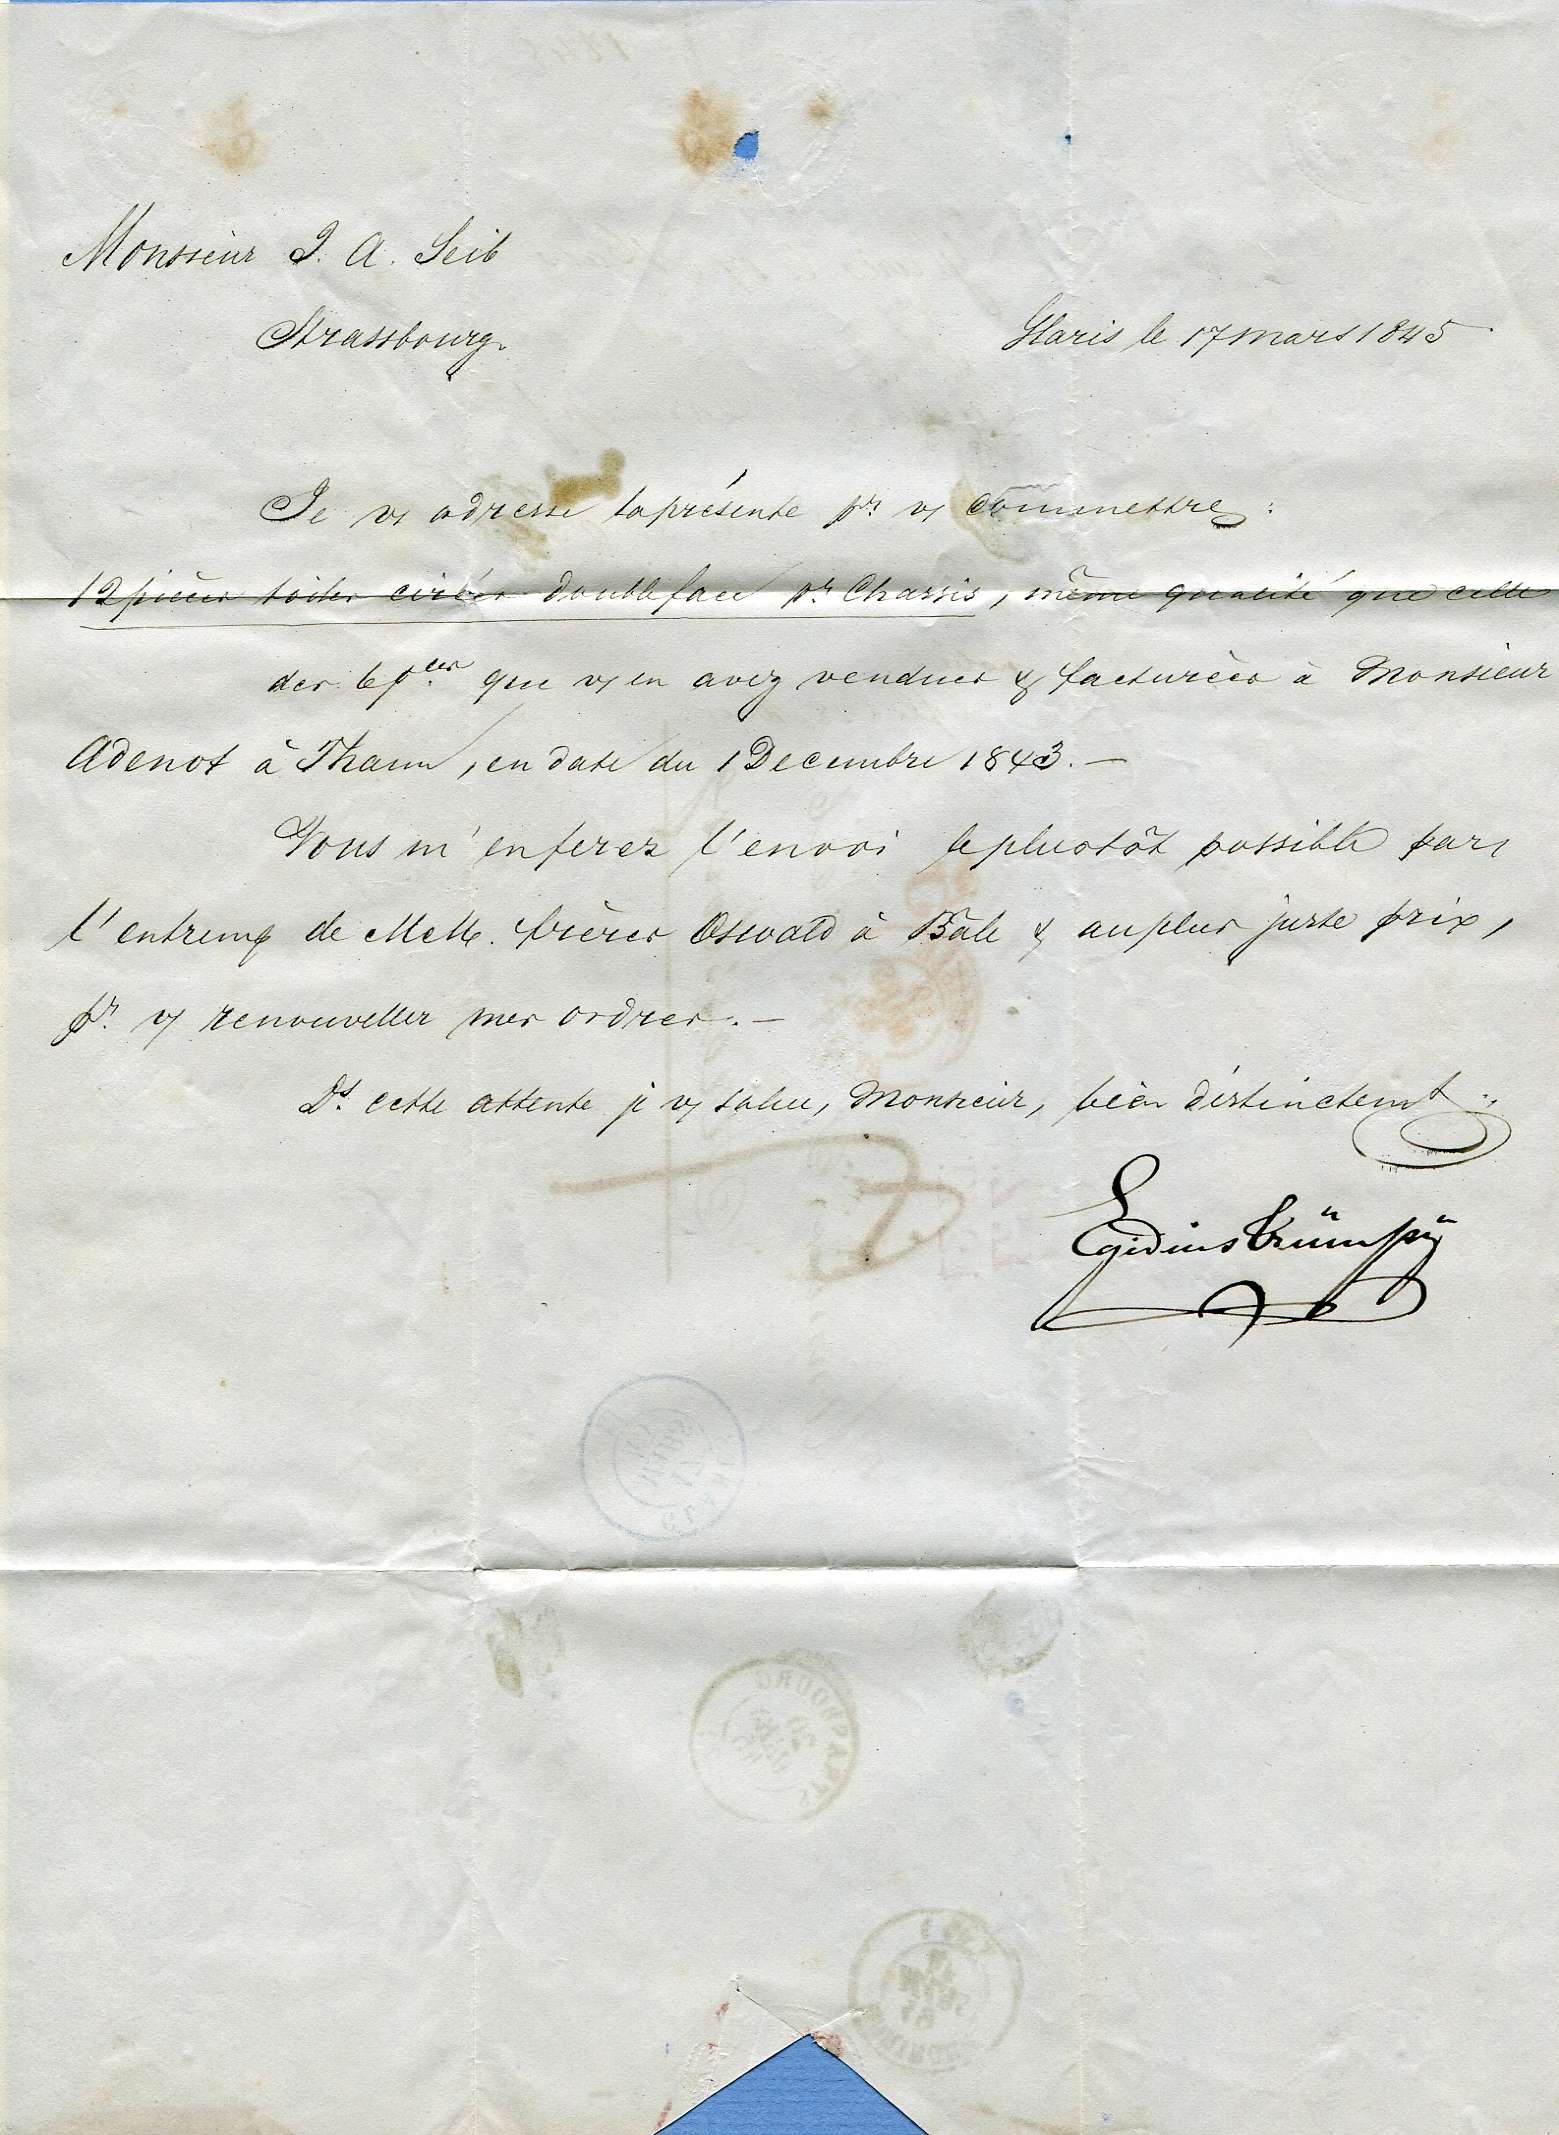 Monsieur J. A. Seib
Strassbourg.
Glaris le 17 mars 1845
Je vs adresse la présente pr. vs commettre :
12 pièces toiles cirées double face pr. Chassis, même qualité que celle
des 6 p.ces que vs en avez vendues & facturées à Monsieur
Adenot à Thann, en date du 1 Decembre 1843. —
Vous m'en ferez l'envoi le plustôt possible par
l'entremse de MM. frères Oswald à Bâle & au plus juste prix,
pr. vs renouveller mes ordres. —
Ds. cette attente je vs salue, Monsieur, bien distinctemt.
Egidius Trümpÿ